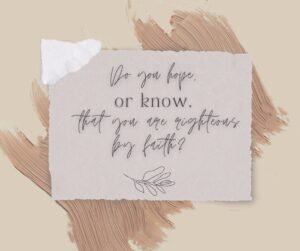 Do you hope,
or know,
that you are righteous
by faith?